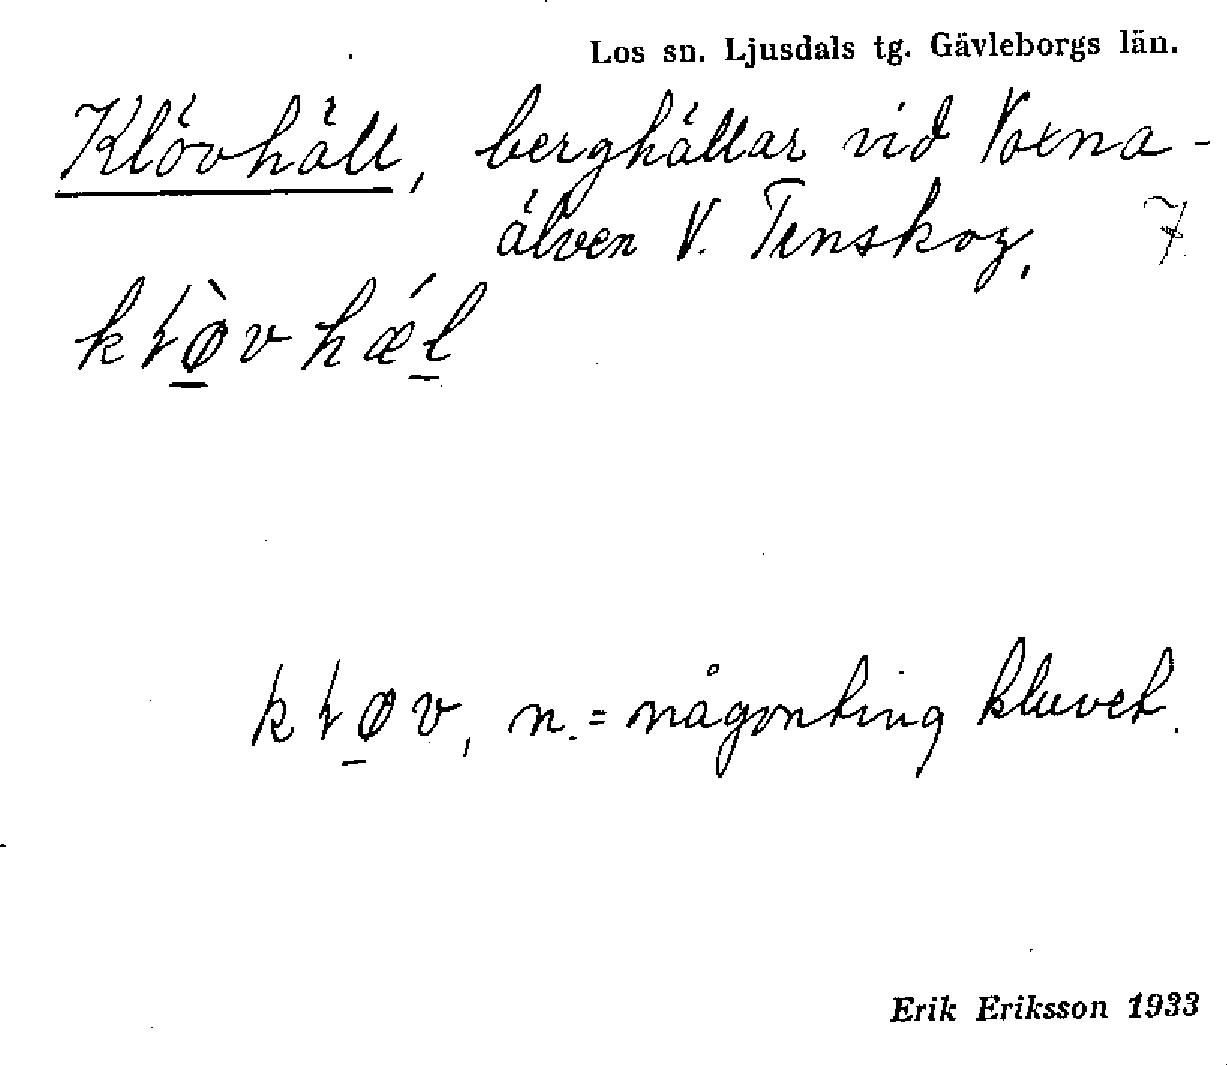 Los sn. Ljusdals tg. Gävleborgs län.
Klövhäll, berghällar vid Voxna-
älven V. Tenskog. 7
kłø̀vhǽl
kłøv, n. = någonting kluvet.
Erik Eriksson 1933